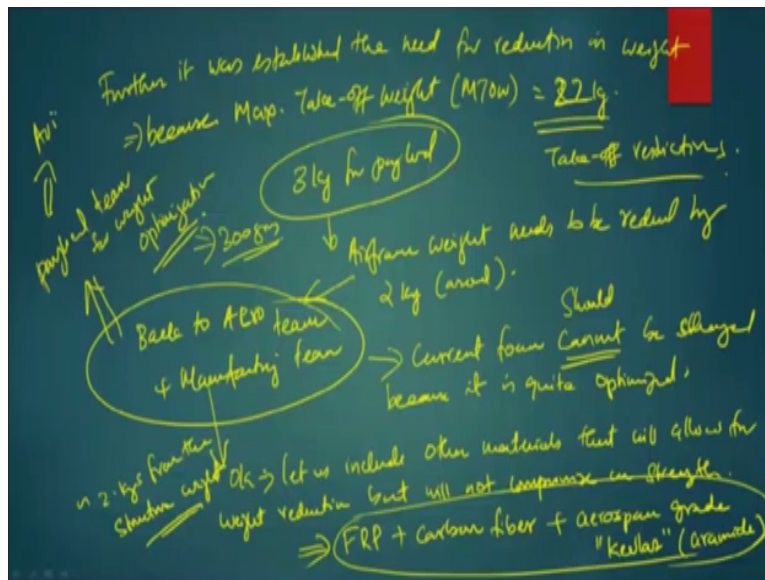 Further it was established the need for reduction in weight
⇒ because Max. Take-off weight (MTOW) = 22 kg.
Take-off restrictions.
3 kg for payload
Airframe weight needs to be reduced by
2 kg (around).
Avi
payload team
for weight
optimization
⇒ 300 gm
Back to AERO team
+ Manufacturing team
Should
→ Current form Cannot be changed
because it is quite optimized.
~ 2 kgs from the
structure weight
Ok → let us include other materials that will allow for
weight reduction but will not compromise on strength.
⇒ FRP + carbon fiber + aerospace grade
"kevlar" (aramide)